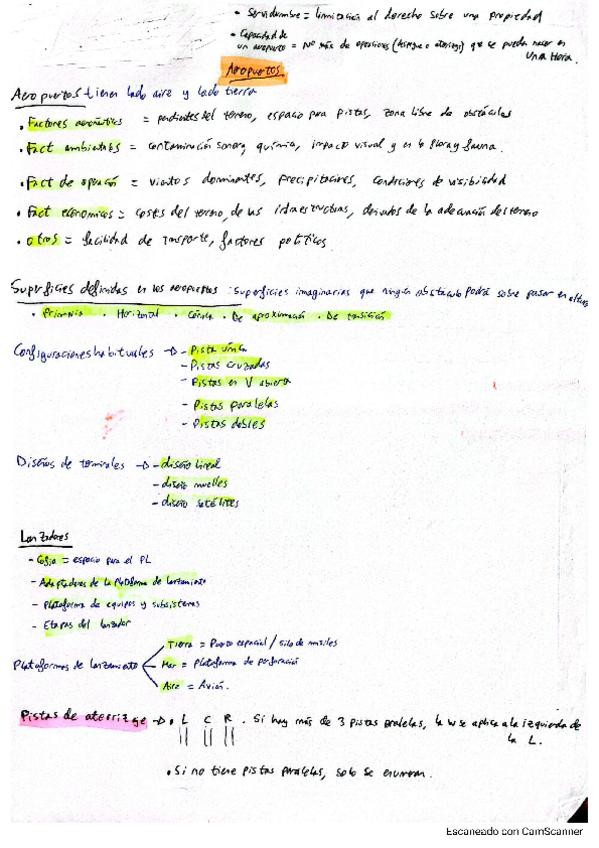 • Servidumbre = limitación al derecho sobre una propiedad
• Capacidad de
un aeropuerto = No máx de operaciones (despegue o aterrizaje) que se puedan hacer en
una hora.
Aeropuertos
Aeropuertos tienen lado aire y lado tierra
• Factores aeronáuticos = pendientes del terreno, espacio para pistas, zona libre de obstáculos
• Fact ambientales = contaminación sonora, química, impacto visual y en la flora y fauna.
• Fact de operación = vientos dominantes, precipitaciones, condiciones de visibilidad
• Fact económicos = costes del terreno, de las infraestructuras, derivados de la adecuación del terreno
• otros = facilidad de transporte, factores políticos.
Superficies definidas en los aeropuertos: Superficies imaginarias que ningún obstáculo podrá sobre pasar en altura
• Primaria • Horizontal • Cónica • De aproximación • De transición
Configuraciones habituales → - Pista única
- Pistas cruzadas
- Pistas en V abierta
- Pistas paralelas
- Pistas dobles
Diseños de terminales → - diseño lineal
- diseño muelles
- diseño satélites
Lanzadores
- Cofia = espacio para el PL
- Adaptadores de la plataforma de lanzamiento
- Plataforma de equipos y subsistemas
- Etapas del lanzador
Plataformas de lanzamiento
Tierra = Puerto espacial / silo de misiles
Mar = Plataforma de perforación
Aire = Avión.
Pistas de aterrizaje → • L C R . Si hay más de 3 pistas paralelas, la w se aplica a la izquierda de
la L.
• Si no tiene pistas paralelas, solo se enumeran.
Escaneado con CamScanner